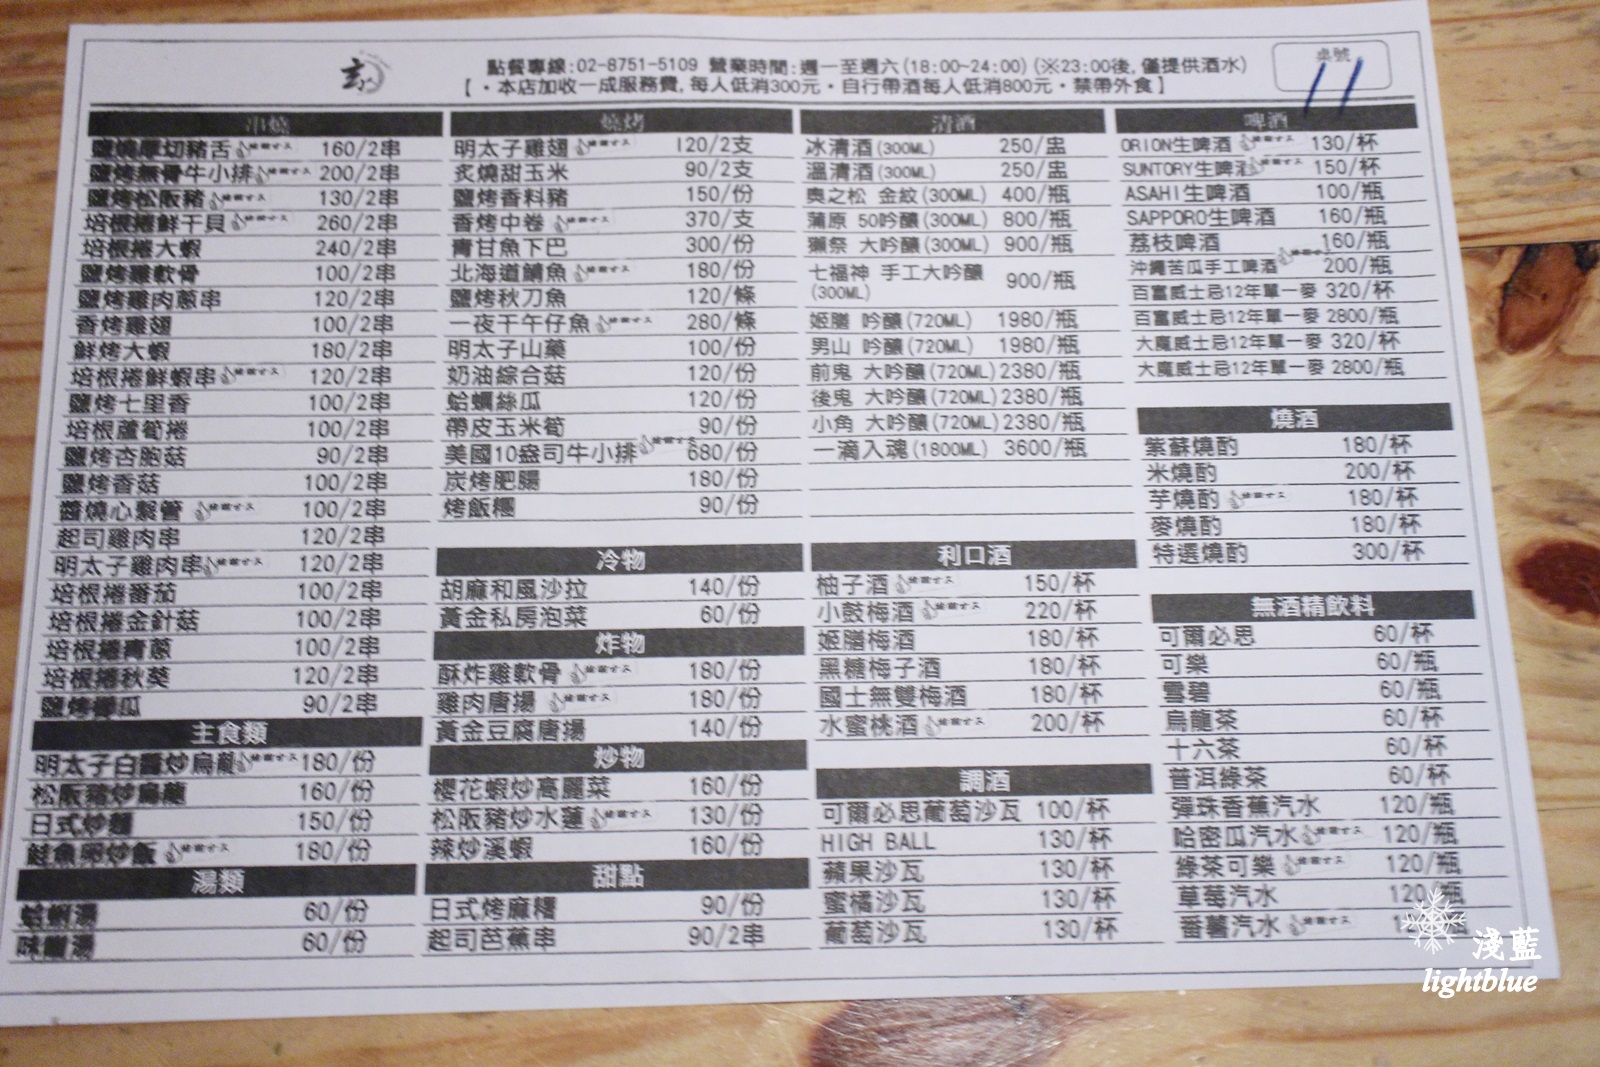 點餐專線:02-8751-5109 營業時間:週一至週六(18:00~24:00)(※23:00後,僅提供酒水)
【・本店加收一成服務費,每人低消300元・自行帶酒每人低消800元・禁帶外食】
桌號
11
串燒
鹽燒厚切豬舌 160/2串
鹽烤無骨牛小排 200/2串
鹽烤松阪豬 130/2串
培根捲鮮干貝 260/2串
培根捲大蝦 240/2串
鹽烤雞軟骨 100/2串
鹽烤雞肉蔥串 120/2串
香烤雞翅 100/2串
鮮烤大蝦 180/2串
培根捲鮮蝦串 120/2串
鹽烤七里香 100/2串
培根蘆筍捲 100/2串
鹽烤杏胞菇 90/2串
鹽烤香菇 100/2串
醬燒心繫管 100/2串
起司雞肉串 120/2串
明太子雞肉串 120/2串
培根捲番茄 100/2串
培根捲金針菇 100/2串
培根捲青蔥 100/2串
培根捲秋葵 120/2串
鹽烤櫛瓜 90/2串
主食類
明太子白醬炒烏龍 180/份
松阪豬炒烏龍 160/份
日式炒麵 150/份
鮭魚卵炒飯 180/份
湯類
蛤蜊湯 60/份
味噌湯 60/份
燒烤
明太子雞翅 120/2支
炙燒甜玉米 90/2支
鹽烤香料豬 150/份
香烤中卷 370/支
青甘魚下巴 300/份
北海道鯖魚 180/份
鹽烤秋刀魚 120/條
一夜干午仔魚 280/條
明太子山藥 100/份
奶油綜合菇 120/份
蛤蠣絲瓜 120/份
帶皮玉米筍 90/份
美國10盎司牛小排 680/份
炭烤肥腸 180/份
烤飯糰 90/份
冷物
胡麻和風沙拉 140/份
黃金私房泡菜 60/份
炸物
酥炸雞軟骨 180/份
雞肉唐揚 180/份
黃金豆腐唐揚 140/份
炒物
櫻花蝦炒高麗菜 160/份
松阪豬炒水蓮 130/份
辣炒溪蝦 160/份
甜點
日式烤麻糬 90/份
起司芭蕉串 90/2串
清酒
冰清酒(300ML) 250/盅
溫清酒(300ML) 250/盅
奧之松 金紋(300ML) 400/瓶
蒲原 50吟釀(300ML) 800/瓶
獺祭 大吟釀(300ML) 900/瓶
七福神 手工大吟釀
(300ML) 900/瓶
姬膳 吟釀(720ML) 1980/瓶
男山 吟釀(720ML) 1980/瓶
前鬼 大吟釀(720ML) 2380/瓶
後鬼 大吟釀(720ML) 2380/瓶
小角 大吟釀(720ML) 2380/瓶
一滴入魂(1800ML) 3600/瓶
利口酒
柚子酒 150/杯
小鼓梅酒 220/杯
姬膳梅酒 180/杯
黑糖梅子酒 180/杯
國士無雙梅酒 180/杯
水蜜桃酒 200/杯
調酒
可爾必思葡萄沙瓦 100/杯
HIGH BALL 130/杯
蘋果沙瓦 130/杯
蜜橘沙瓦 130/杯
葡萄沙瓦 130/杯
啤酒
ORION生啤酒 130/杯
SUNTORY生啤酒 150/杯
ASAHI生啤酒 100/瓶
SAPPORO生啤酒 160/瓶
荔枝啤酒 160/瓶
沖繩苦瓜手工啤酒 200/瓶
百富威士忌12年單一麥 320/杯
百富威士忌12年單一麥 2800/瓶
大魔威士忌12年單一麥 320/杯
大魔威士忌12年單一麥 2800/瓶
燒酒
紫蘇燒酌 180/杯
米燒酌 200/杯
芋燒酌 180/杯
麥燒酌 180/杯
特選燒酌 300/杯
無酒精飲料
可爾必思 60/杯
可樂 60/瓶
雪碧 60/瓶
烏龍茶 60/杯
十六茶 60/杯
普洱綠茶 60/杯
彈珠香蕉汽水 120/瓶
哈密瓜汽水 120/瓶
綠茶可樂 120/瓶
草莓汽水 120/瓶
番薯汽水
淺藍
lightblue